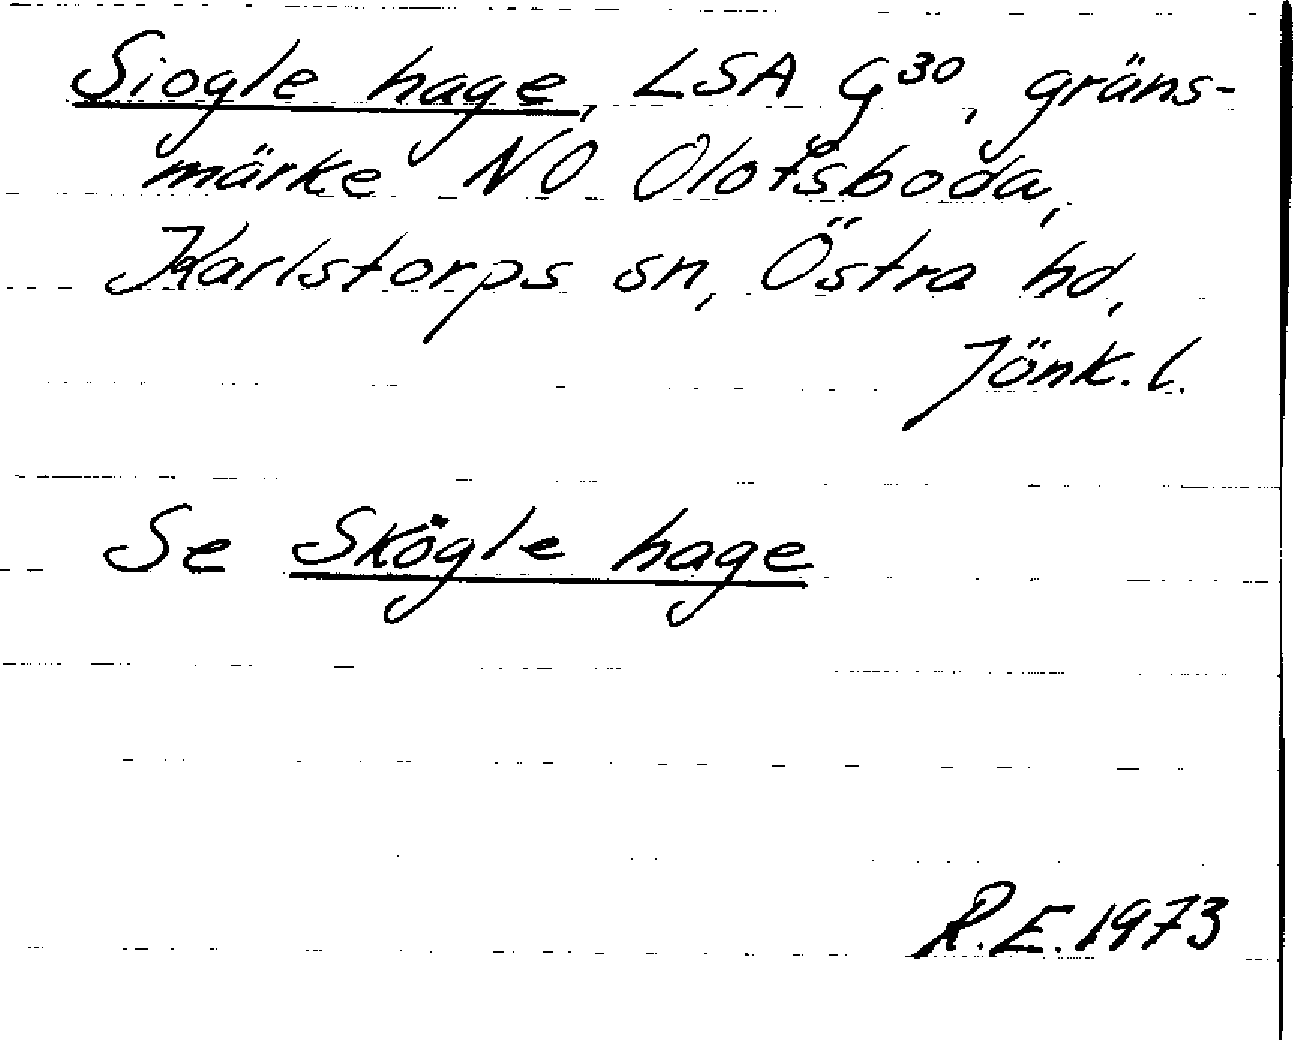 Siogle hage, LSA G30, gräns-
märke NO Olofsboda,
Karlstorps sn, Östra hd,
Jönk. l.
Se Skögle hage
R.E. 1973